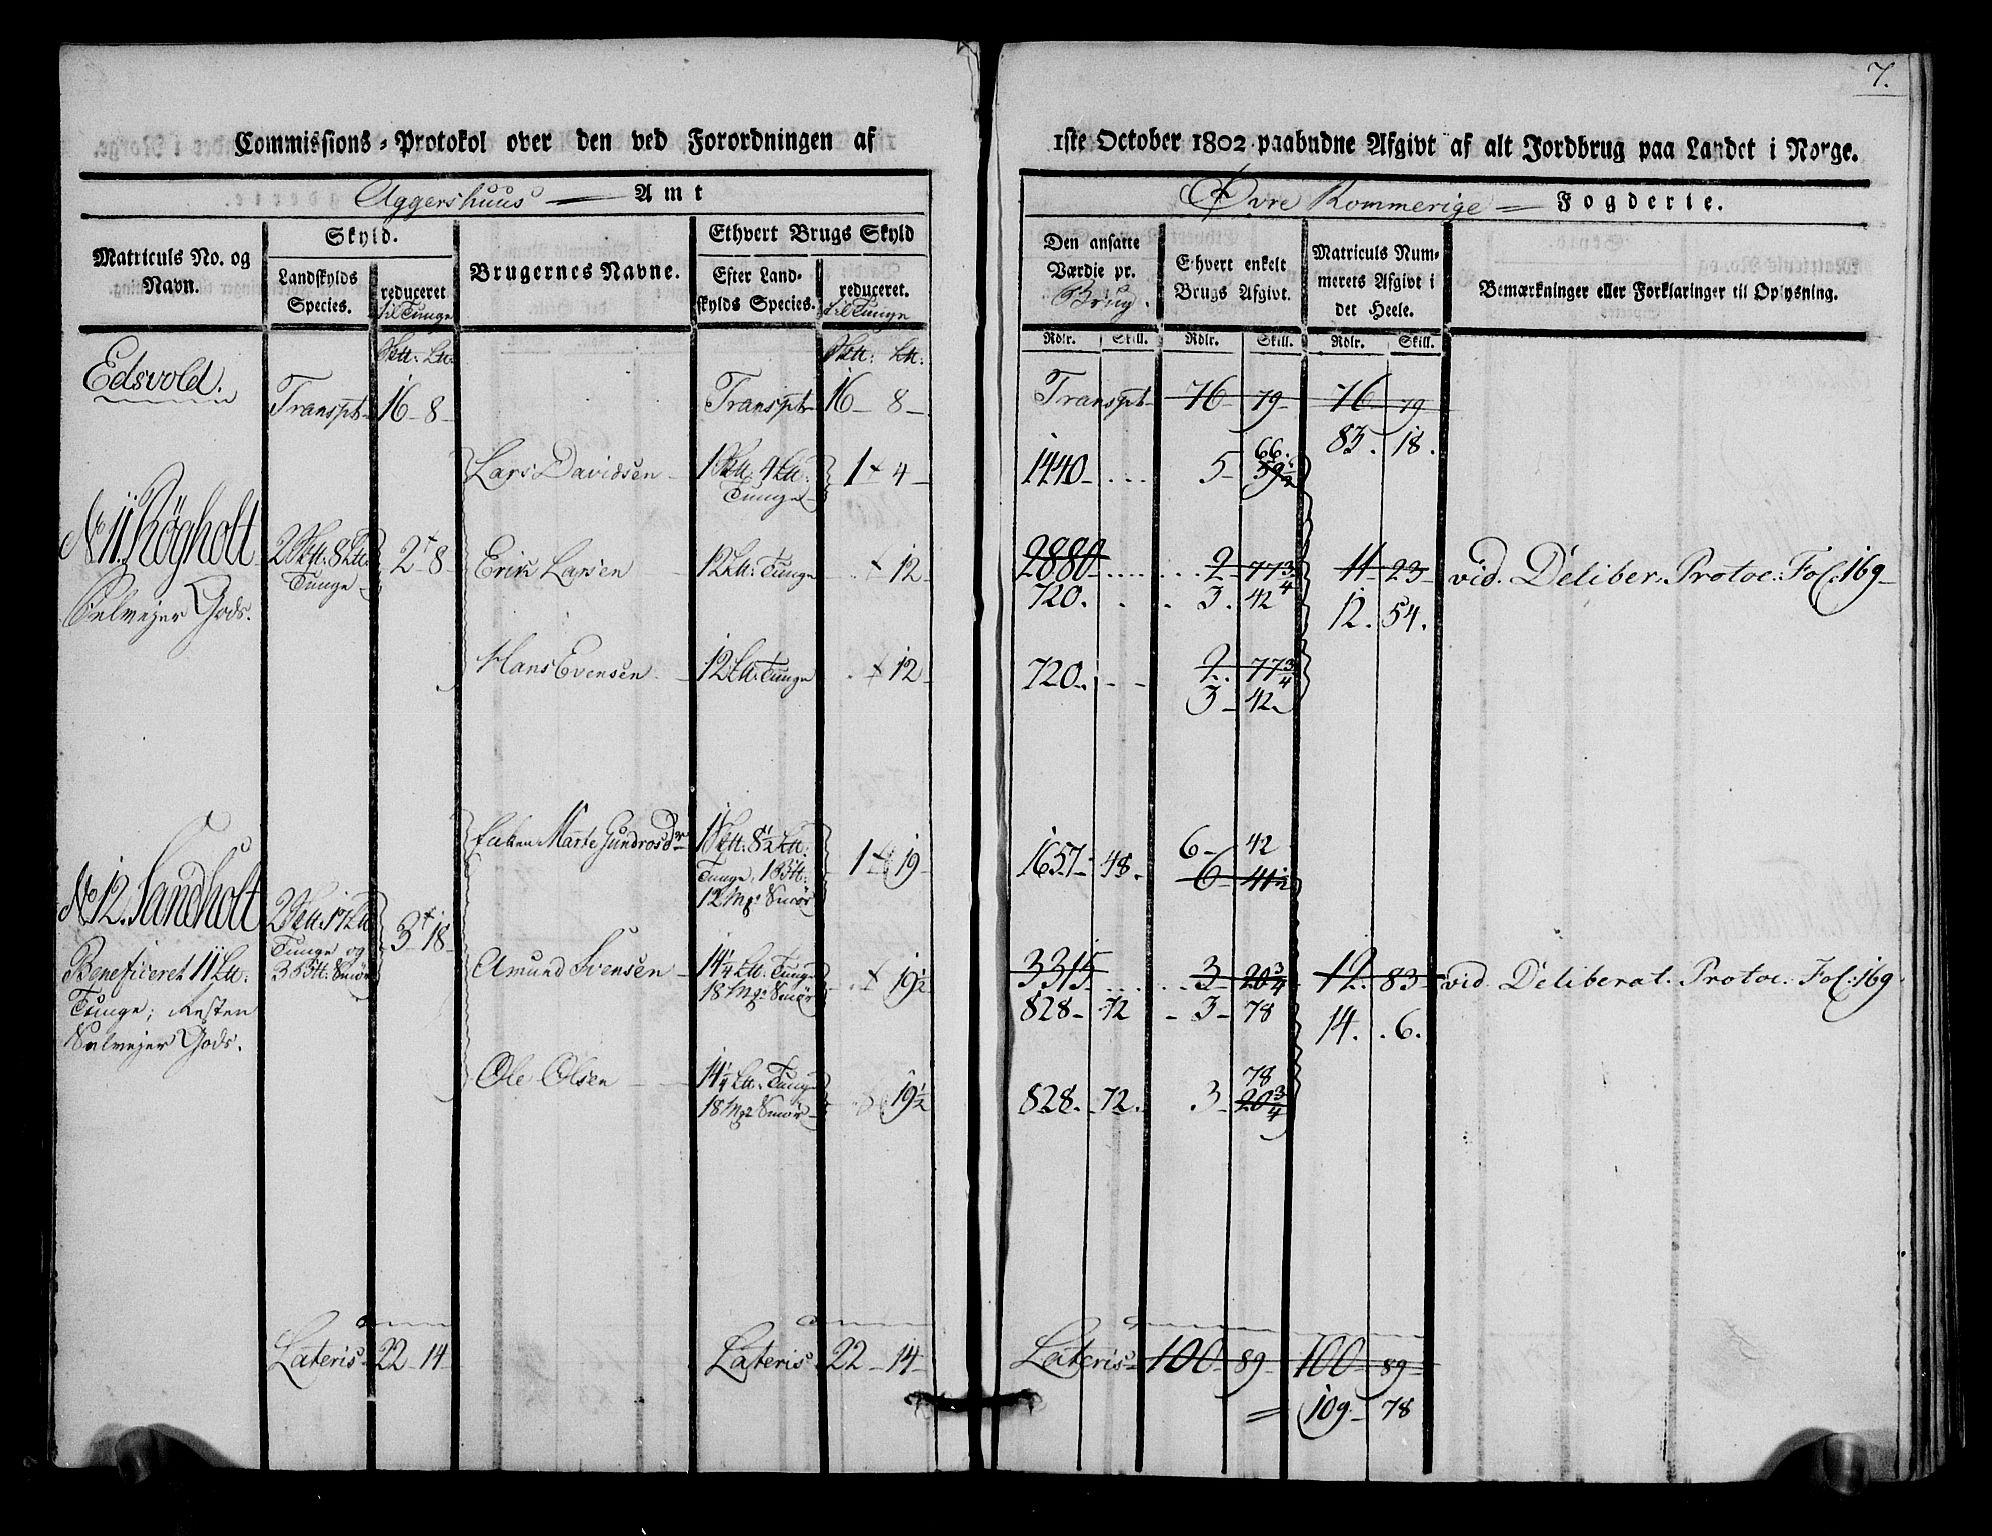 7.
Commissions-Protokol over den ved Forordningen af 1ste October 1802 paabudne Afgivt af alt Jordbrug paa Landet i Norge.
Aggershuus Amt
Øvre Rommerige Fogderie.
Matriculs No. og Navn.
Skyld.
Landskylds Species.
reduceret til Tunge
Brugernes Navne.
Ethvert Brugs Skyld
Efter Landskylds Species.
reduceret. til Tunge
Den ansatte Værdie pr. Brug.
Ethvert enkelt Brugs Afgivt.
Matriculs Nummerets Afgivt i det Heele.
Bemærkninger eller Forklaringer til Oplysning.
Rdlr. Skill. Rdlr. Skill. Rdlr. Skill.
Edsvold.
Transpt 16 - 8 - Transpt 16 - 8 - Transpt 76 - 79 - 76 - 79
83. 18.
Lars Davidsen - 1 4 Tunge 1 4 - 1440 - 5 - 66.
No 11. Røgholt 2 8 Tunge 2 8
Selvejer Gods.
Erik Larsen 12 Tunge 12 - 2880 - 2 - 77 3/4 11 - 23 - vid. Deliber. Protoc: Fol: 169 -
720. 3. 42 12. 54.
Hans Evensen - 12 Tunge 12 - 720 - 2 - 77 3/4
3 - 42.
Marte Gundrosd 1 8 1/2 Tunge, 1 12 Smør 1 19 - 1657 - 48. 6 - 42
6 - 41 1/2
No 12. Sandholt 2 17 Tunge og 3 Smør 3 18 -
Beneficeret 11 Tunge; Resten Selvejer Gods.
Amund Svensen - 14 1/4 Tunge 18 Smør 19 1/2 3315 - 3 - 20 3/4 12. 83 - vid Deliberat. Protoc. Fol: 169
828 - 72 - 3 - 78 14. 6.
Ole Olsen 14 1/4 Tunge 18 Smør 19 1/2 828. 72. 3 - 78
20 3/4
Lateris 22 - 14 Lateris 22 - 14 - Lateris - 100 - 89 - 100 - 89 -
= 109 - 78